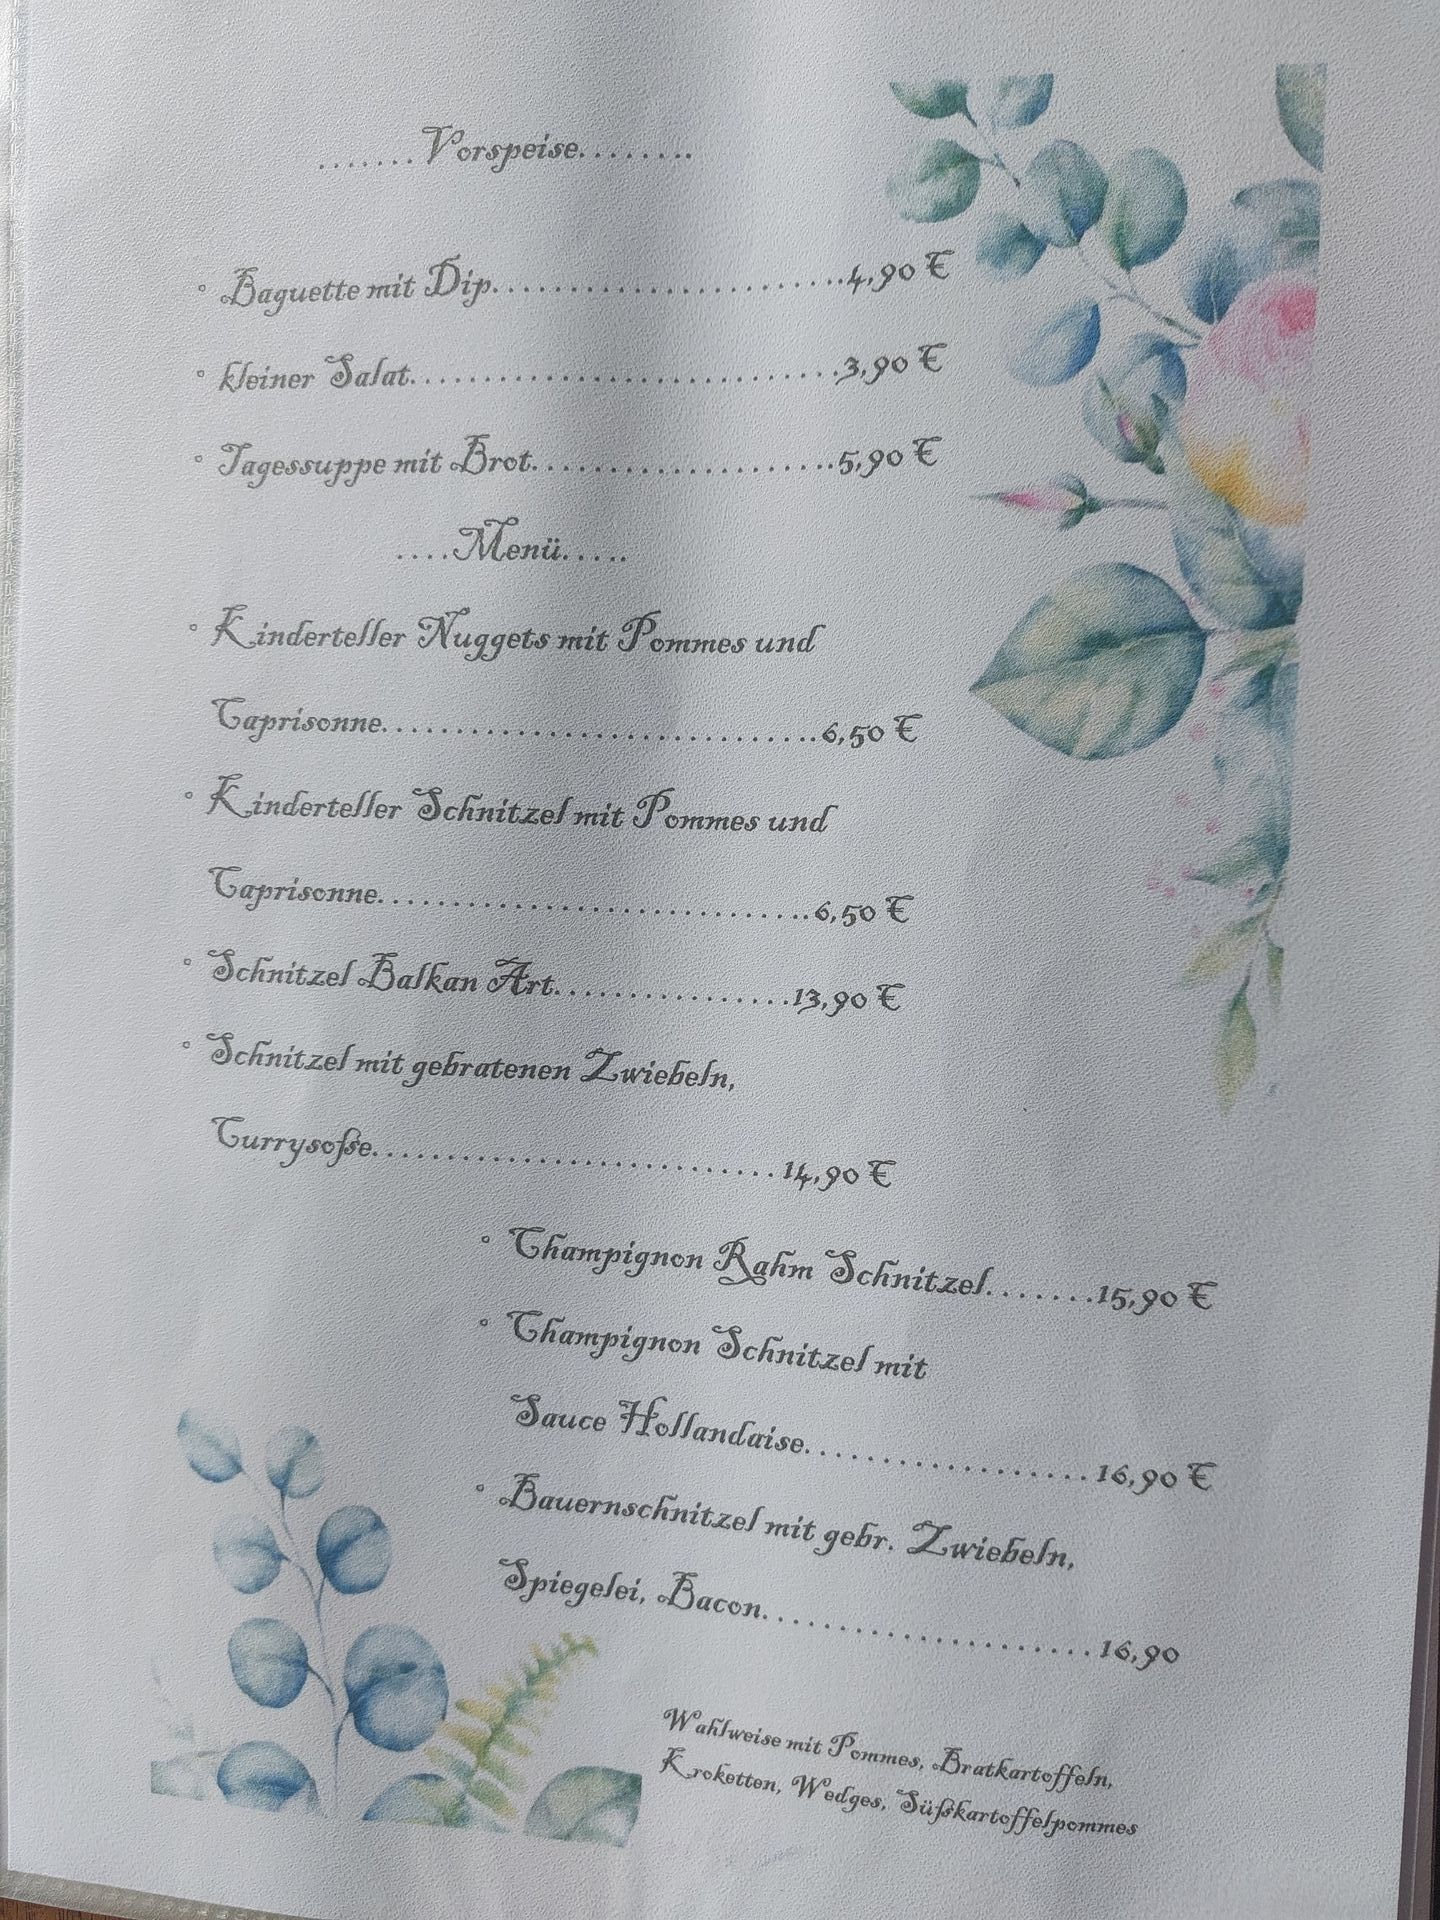 .......Vorspeise........
° Baguette mit Dip........................4,90 €
° kleiner Salat.............................3,90 €
° Tagessuppe mit Brot.....................5,90 €
....Menü.....
° Kinderteller Nuggets mit Pommes und
Caprisonne..............................6,50 €
° Kinderteller Schnitzel mit Pommes und
Caprisonne..............................6,50 €
° Schnitzel Balkan Art................13,90 €
° Schnitzel mit gebratenen Zwiebeln,
Currysoße............................14,90 €
° Champignon Rahm Schnitzel.......15,90 €
° Champignon Schnitzel mit
Sauce Hollandaise...................16,90 €
° Bauernschnitzel mit gebr. Zwiebeln,
Spiegelei, Bacon......................16,90
Wahlweise mit Pommes, Bratkartoffeln,
Kroketten, Wedges, Süßkartoffelpommes